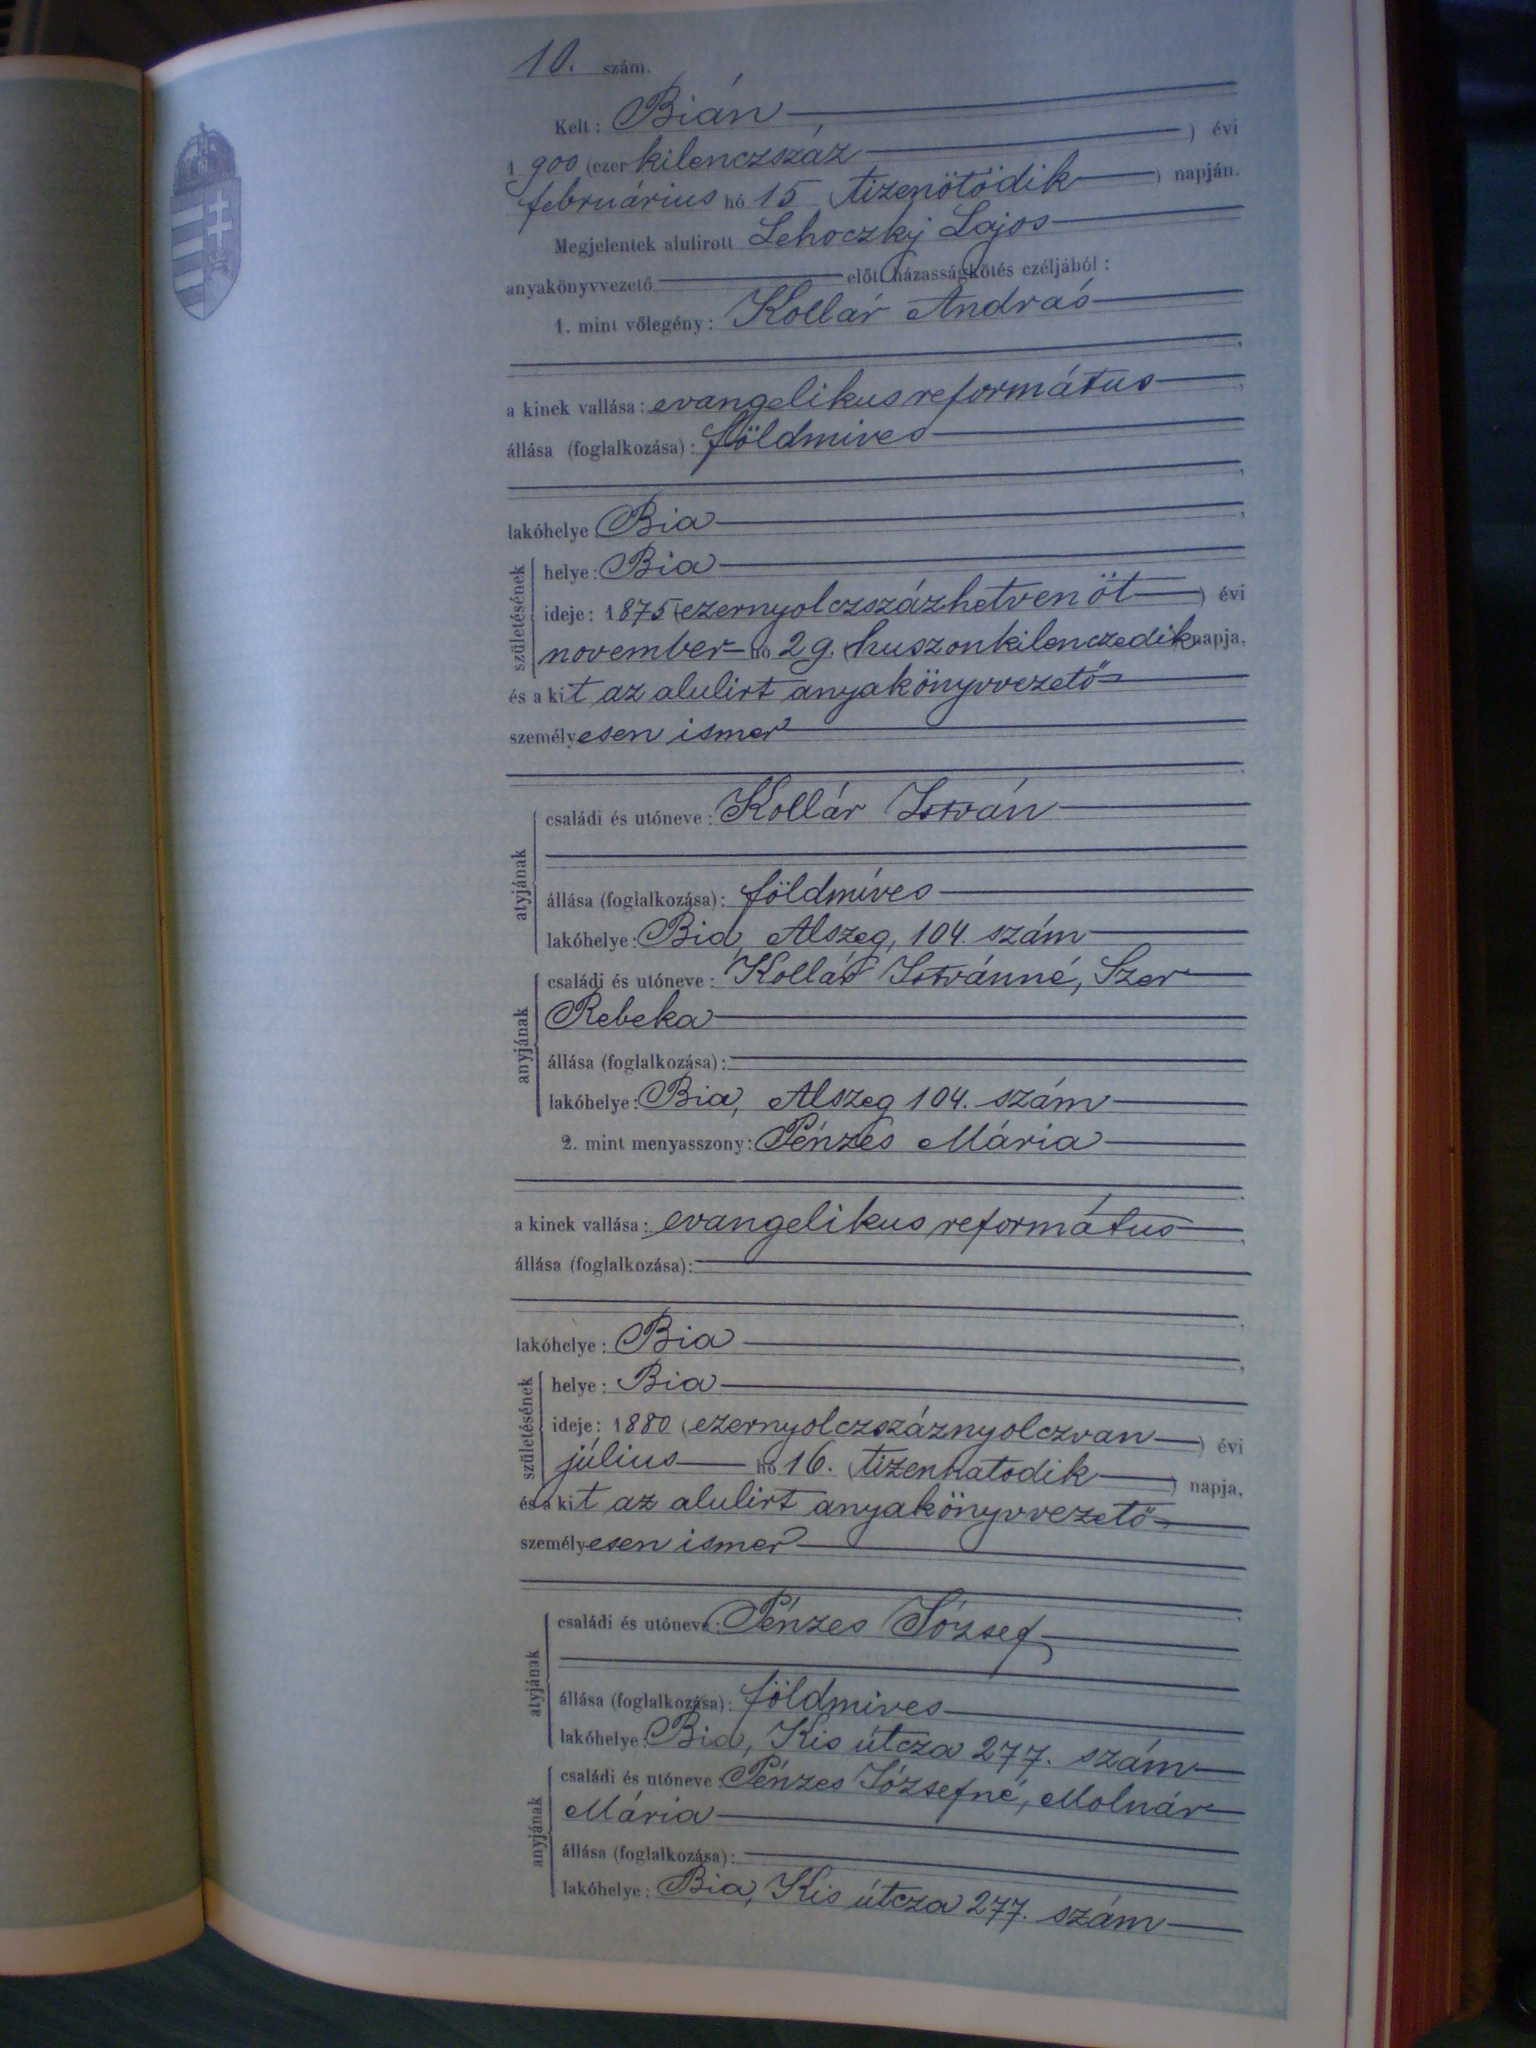 10. szám.
Kelt: Bián
1900 (ezer kilenczszáz) évi
februárius hó 15 (tizenötödik) napján.
Megjelentek alulirott Lehoczky Lajos
anyakönyvvezető előtt házasságkötés czéljából:
1. mint vőlegény: Kollár András
a kinek vallása: evangelikus református
állása (foglalkozása): földmives
lakóhelye Bia
születésének
helye: Bia
ideje: 1875 (ezernyolczszázhetvenöt) évi
november hó 29. (huszonkilenczedik napja,
és a kit az alulirt anyakönyvvezető
személyesen ismer
atyjának
családi és utóneve: Kollár István
állása (foglalkozása): földmíves
lakóhelye: Bia, Alszeg, 104. szám
anyjának
családi és utóneve: Kollár Istvánné, Szer
Rebeka
állása (foglalkozása):
lakóhelye: Bia, Alszeg 104. szám
2. mint menyasszony: Pénzes Mária
a kinek vallása: evangelikus református
állása (foglalkozása):
lakóhelye: Bia
születésének
helye: Bia
ideje: 1880 (ezernyolczszáznyolczvan) évi
július hó 16. (tizenhatodik) napja,
és a kit az alulirt anyakönyvvezető
személyesen ismer
atyjának
családi és utóneve: Pénzes József
állása (foglalkozása): földmives
lakóhelye: Bia, Kis útcza 277. szám
anyjának
családi és utóneve: Pénzes Józsefné, Molnár
Mária
állása (foglalkozása):
lakóhelye: Bia, Kis útcza 277. szám